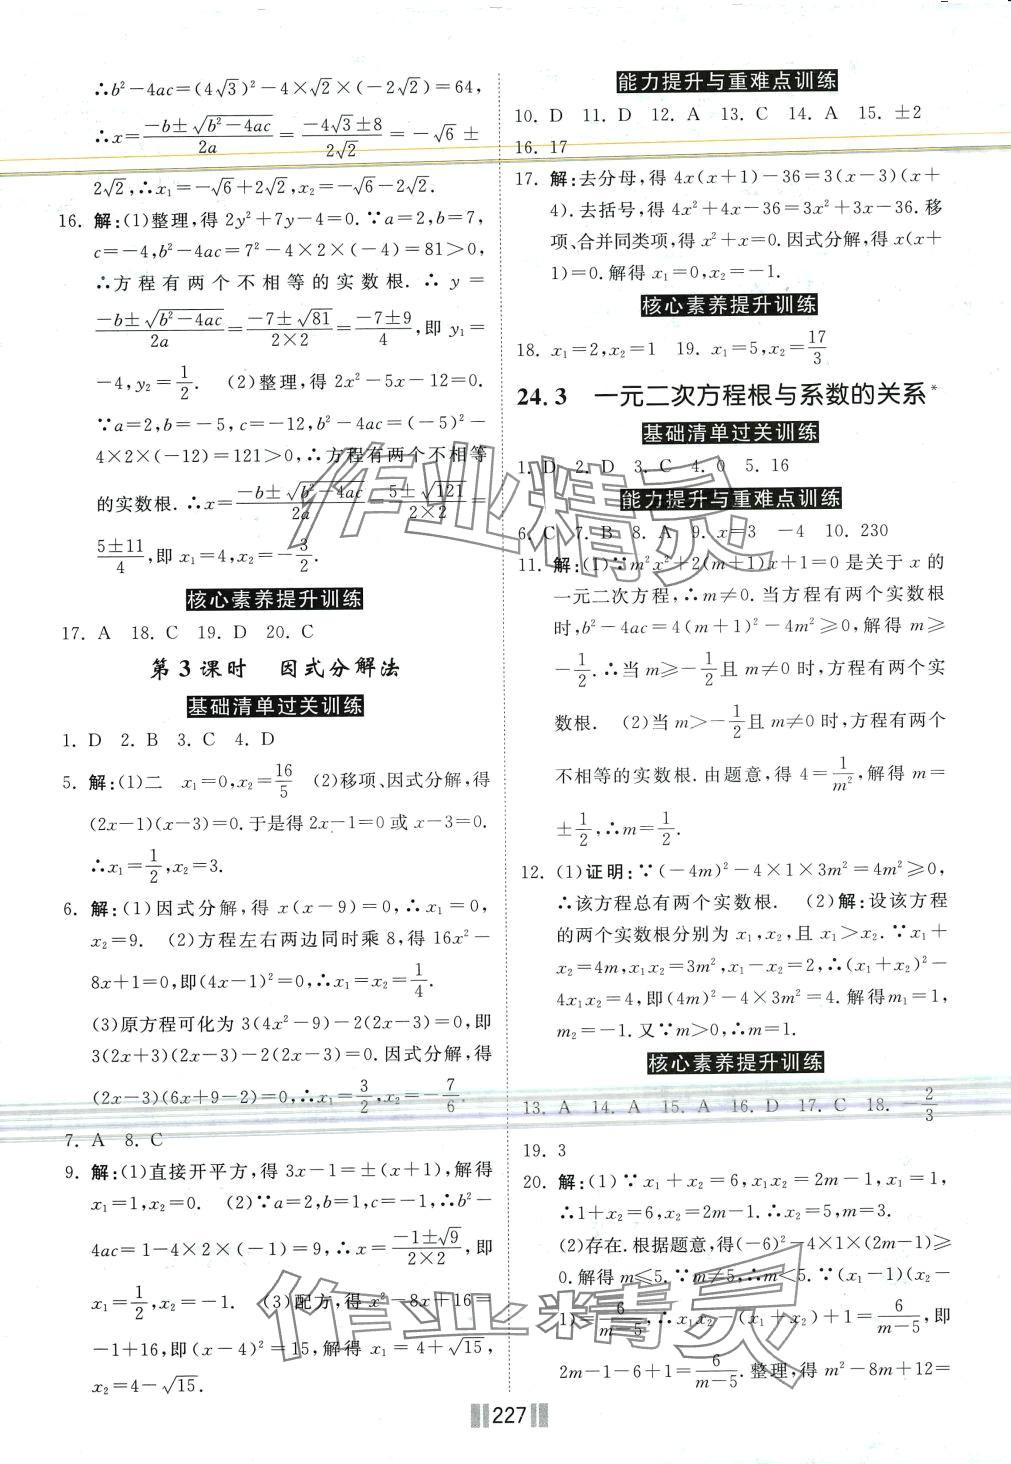 ∴b²-4ac=(4√3)²-4×√2×(-2√2)=64,
∴x=(-b±√(b²-4ac))/2a=(-4√3±8)/2√2=-√6±
2√2,∴x₁=-√6+2√2,x₂=-√6-2√2.
16. 解:(1)整理,得2y²+7y-4=0.∵a=2,b=7,
c=-4,b²-4ac=7²-4×2×(-4)=81>0,
∴方程有两个不相等的实数根.∴y=
(-b±√(b²-4ac))/2a=(-7±√81)/(2×2)=(-7±9)/4,即y₁=
-4,y₂=1/2. (2)整理,得2x²-5x-12=0.
∵a=2,b=-5,c=-12,∴b²-4ac=(-5)²-
4×2×(-12)=121>0,∴方程有两个不相等
的实数根.∴x=(-b±√(b²-4ac))/2a=(5±√121)/(2×2)=
(5±11)/4,即x₁=4,x₂=-3/2.
核心素养提升训练
17. A 18. C 19. D 20. C
第3课时 因式分解法
基础清单过关训练
1. D 2. B 3. C 4. D
5. 解:(1)二 x₁=0,x₂=16/5 (2)移项、因式分解,得
(2x-1)(x-3)=0.于是得2x-1=0或x-3=0.
∴x₁=1/2,x₂=3.
6. 解:(1)因式分解,得x(x-9)=0,∴x₁=0,
x₂=9. (2)方程左右两边同时乘8,得16x²-
8x+1=0,即(4x-1)²=0,∴x₁=x₂=1/4.
(3)原方程可化为3(4x²-9)-2(2x-3)=0,即
3(2x+3)(2x-3)-2(2x-3)=0.因式分解,得
(2x-3)(6x+9-2)=0,∴x₁=3/2,x₂=-7/6.
7. A 8. C
9. 解:(1)直接开平方,得3x-1=±(x+1),解得
x₁=1,x₂=0. (2)∵a=2,b=1,c=-1,∴b²-
4ac=1-4×2×(-1)=9,∴x=(-1±√9)/(2×2),即
x₁=1/2,x₂=-1. (3)配方,得x²-8x+16=
-1+16,即(x-4)²=15,解得x₁=4+√15,
x₂=4-√15.
能力提升与重难点训练
10. D 11. D 12. A 13. C 14. A 15. ±2
16. 17
17. 解:去分母,得4x(x+1)-36=3(x-3)(x+
4).去括号,得4x²+4x-36=3x²+3x-36.移
项、合并同类项,得x²+x=0.因式分解,得x(x+
1)=0.解得x₁=0,x₂=-1.
核心素养提升训练
18. x₁=2,x₂=1 19. x₁=5,x₂=17/3
24.3 一元二次方程根与系数的关系*
基础清单过关训练
1. D 2. D 3. C 4. 0 5. 16
能力提升与重难点训练
6. C 7. B 8. A 9. x=3 -4 10. 230
11. 解:(1)∵m²x²+2(m+1)x+1=0是关于x的
一元二次方程,∴m≠0.当方程有两个实数根
时,b²-4ac=4(m+1)²-4m²≥0,解得m≥
-1/2.∴当m≥-1/2且m≠0时,方程有两个实
数根. (2)当m>-1/2且m≠0时,方程有两个
不相等的实数根.由题意,得4=1/m²,解得m=
±1/2,∴m=1/2.
12. (1)证明:∵(-4m)²-4×1×3m²=4m²≥0,
∴该方程总有两个实数根. (2)解:设该方程
的两个实数根分别为x₁,x₂,且x₁>x₂.∵x₁+
x₂=4m,x₁x₂=3m²,x₁-x₂=2,∴(x₁+x₂)²-
4x₁x₂=4,即(4m)²-4×3m²=4.解得m₁=1,
m₂=-1.又∵m>0,∴m=1.
核心素养提升训练
13. A 14. A 15. A 16. D 17. C 18. -2/3
19. 3
20. 解:(1)∵x₁+x₂=6,x₁x₂=2m-1,x₁=1,
∴1+x₂=6,x₂=2m-1.∴x₂=5,m=3.
(2)存在.根据题意,得(-6)²-4×1×(2m-1)≥
0.解得m≤5.∵m≠5,∴m<5.∵(x₁-1)(x₂-
1)=6/(m-5),∴x₁x₂-(x₁+x₂)+1=6/(m-5),即
2m-1-6+1=6/(m-5).整理,得m²-8m+12=
227
作业精灵
作业精灵